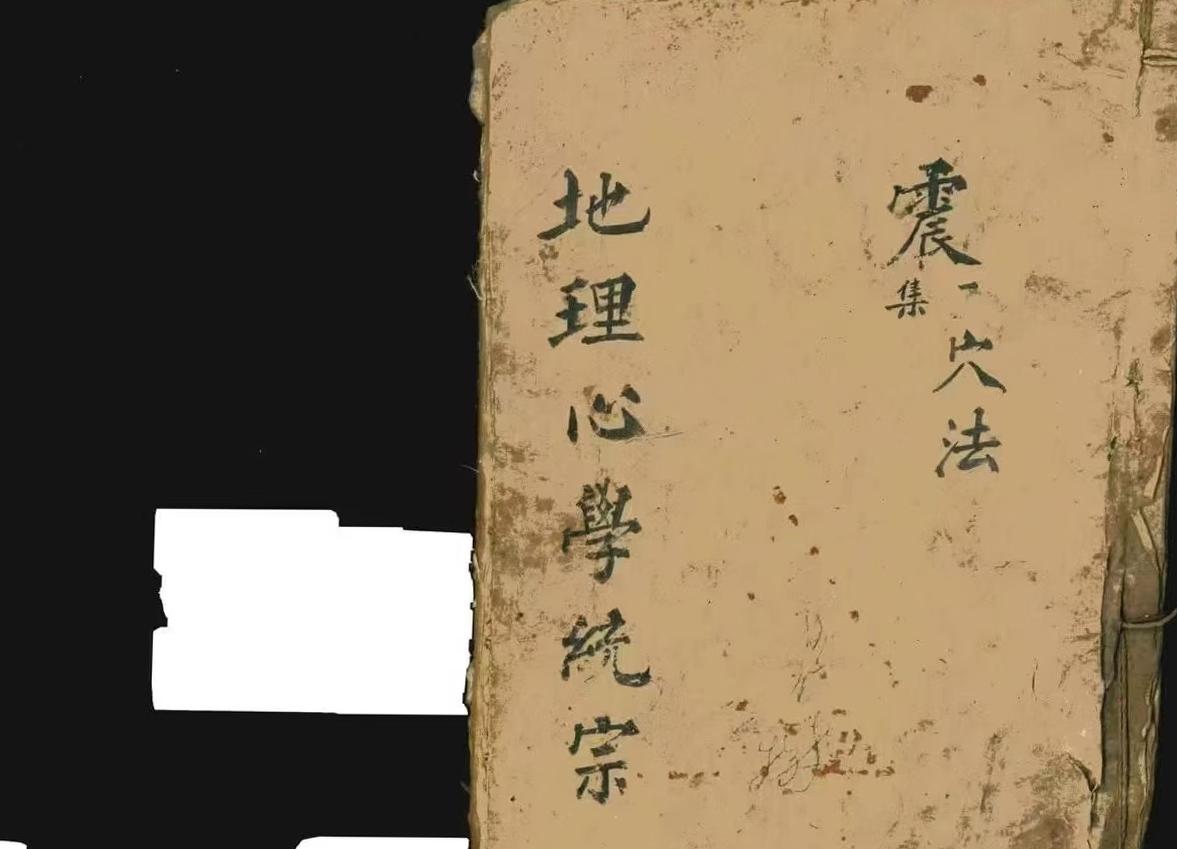 震集
穴法
地理心學統宗